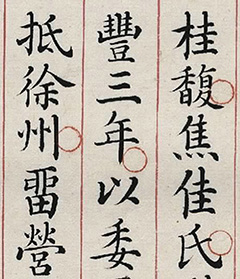 桂馥焦佳氏
豐三年以委
抵徐州畱營